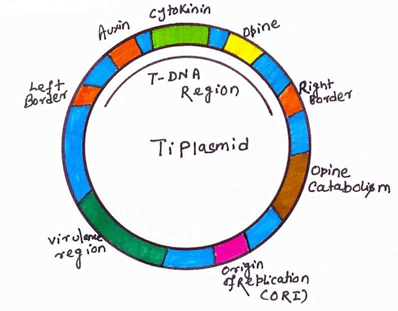 Cytokinin
Auxin
Opine
Left
Border
T-DNA
Region
Right
Border
Ti Plasmid
Opine
Catabolism
Virulence
region
Origin
of Replication
(ORI)